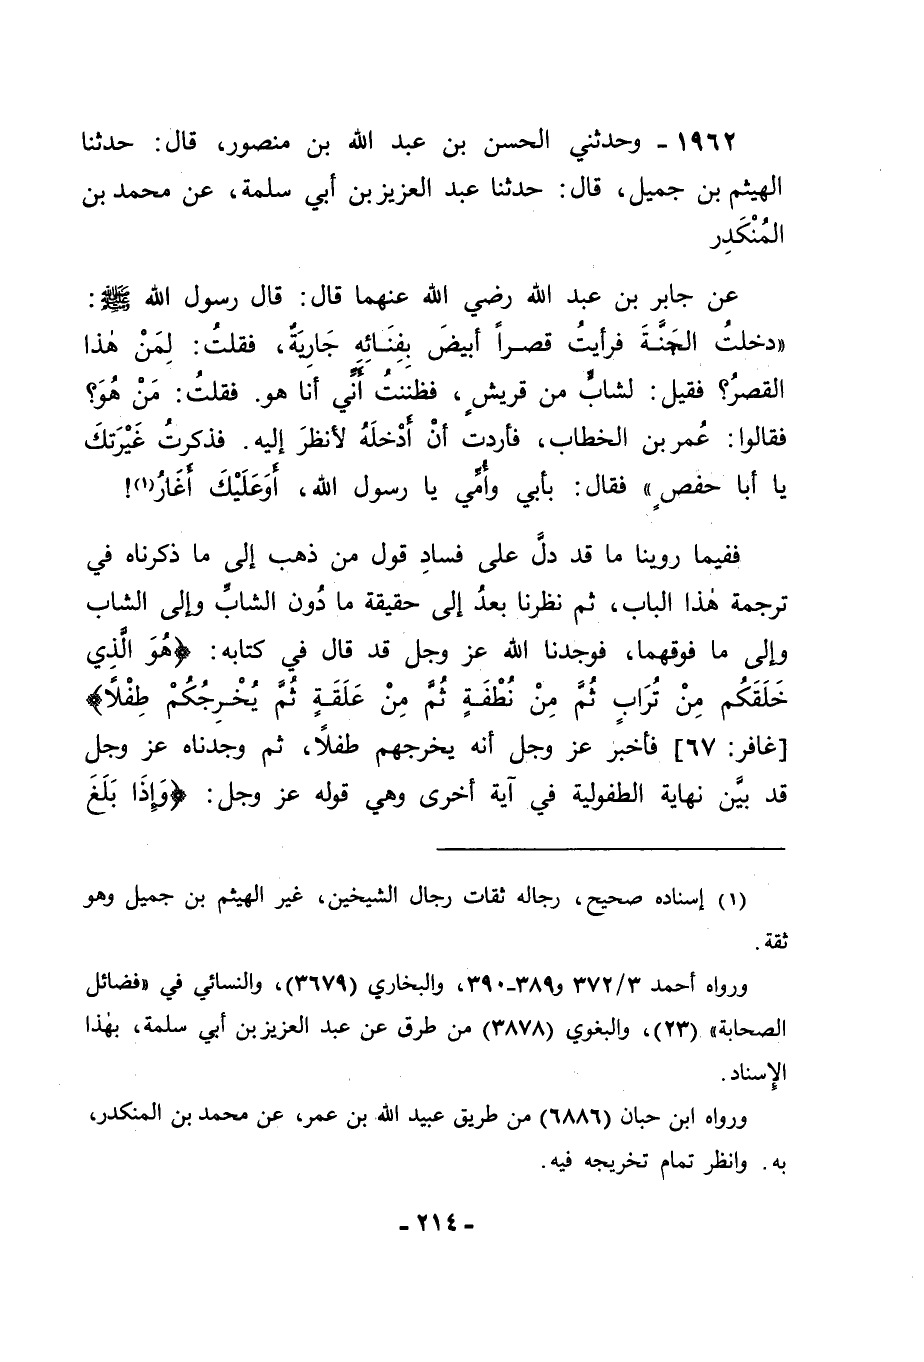 ١٩٦٢ - وحدثني الحسن بن عبد الله بن منصور، قال: حدثنا
الهيثم بن جميل، قال: حدثنا عبد العزيز بن أبي سلمة، عن محمد بن
المُنْكَدِر
عن جابر بن عبد الله رضي الله عنهما قال: قال رسول الله ﷺ:
«دخلتُ الجَنَّةَ فرأيتُ قصراً أبيضَ بِفِنَائِهِ جَارِيَةٌ، فقلتُ: لِمَنْ هٰذا
القصرُ؟ فقيل: لشابٍّ من قريشٍ، فظننتُ أَنِّي أنا هو. فقلتُ: مَنْ هُوَ؟
فقالوا: عُمر بن الخطاب، فأردت أنْ أَدْخلَهُ لأنظرَ إليه. فذكرتُ غَيْرَتكَ
يا أبا حفصٍ» فقال: بأبي وأُمِّي يا رسول الله، أَوَعَلَيْكَ أَغَارُ(١)!
ففيما روينا ما قد دلَّ على فسادِ قول من ذهب إلى ما ذكرناه في
ترجمة هٰذا الباب، ثم نظرنا بعدُ إلى حقيقة ما دُون الشابِّ وإلى الشاب
وإلى ما فوقهما، فوجدنا الله عز وجل قد قال في كتابه: ﴿هُوَ الَّذِي
خَلَقَكُم مِنْ تُرَابٍ ثُمَّ مِنْ نُطْفَةٍ ثُمَّ مِنْ عَلَقَةٍ ثُمَّ يُخْرِجُكُمْ طِفْلًا﴾
[غافر: ٦٧] فأخبر عز وجل أنه يخرجهم طفلًا، ثم وجدناه عز وجل
قد بيَّن نهاية الطفولية في آية أخرى وهي قوله عز وجل: ﴿وَإِذَا بَلَغَ
(١) إسناده صحيح، رجاله ثقات رجال الشيخين، غير الهيثم بن جميل وهو
ثقة.
ورواه أحمد ٣٧٢/٣ و٣٨٩-٣٩٠، والبخاري (٣٦٧٩)، والنسائي في «فضائل
الصحابة» (٢٣)، والبغوي (٣٨٧٨) من طرق عن عبد العزيز بن أبي سلمة، بهٰذا
الإِسناد.
ورواه ابن حبان (٦٨٨٦) من طريق عبيد الله بن عمر، عن محمد بن المنكدر،
به. وانظر تمام تخريجه فيه.
- ٢١٤ -